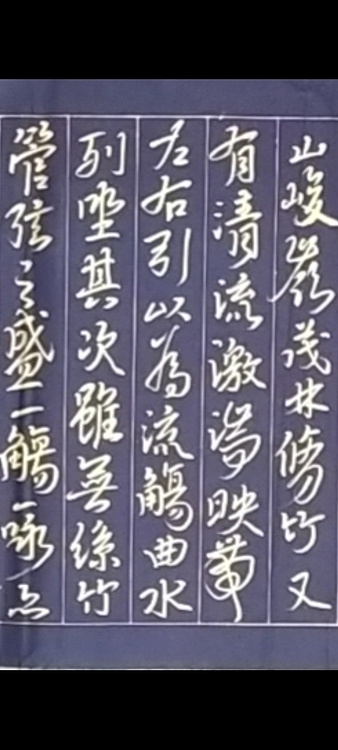 山峻嶺茂林脩竹又
有清流激湍映帶
左右引以為流觴曲水
列坐其次雖無絲竹
管弦之盛一觴一詠亦